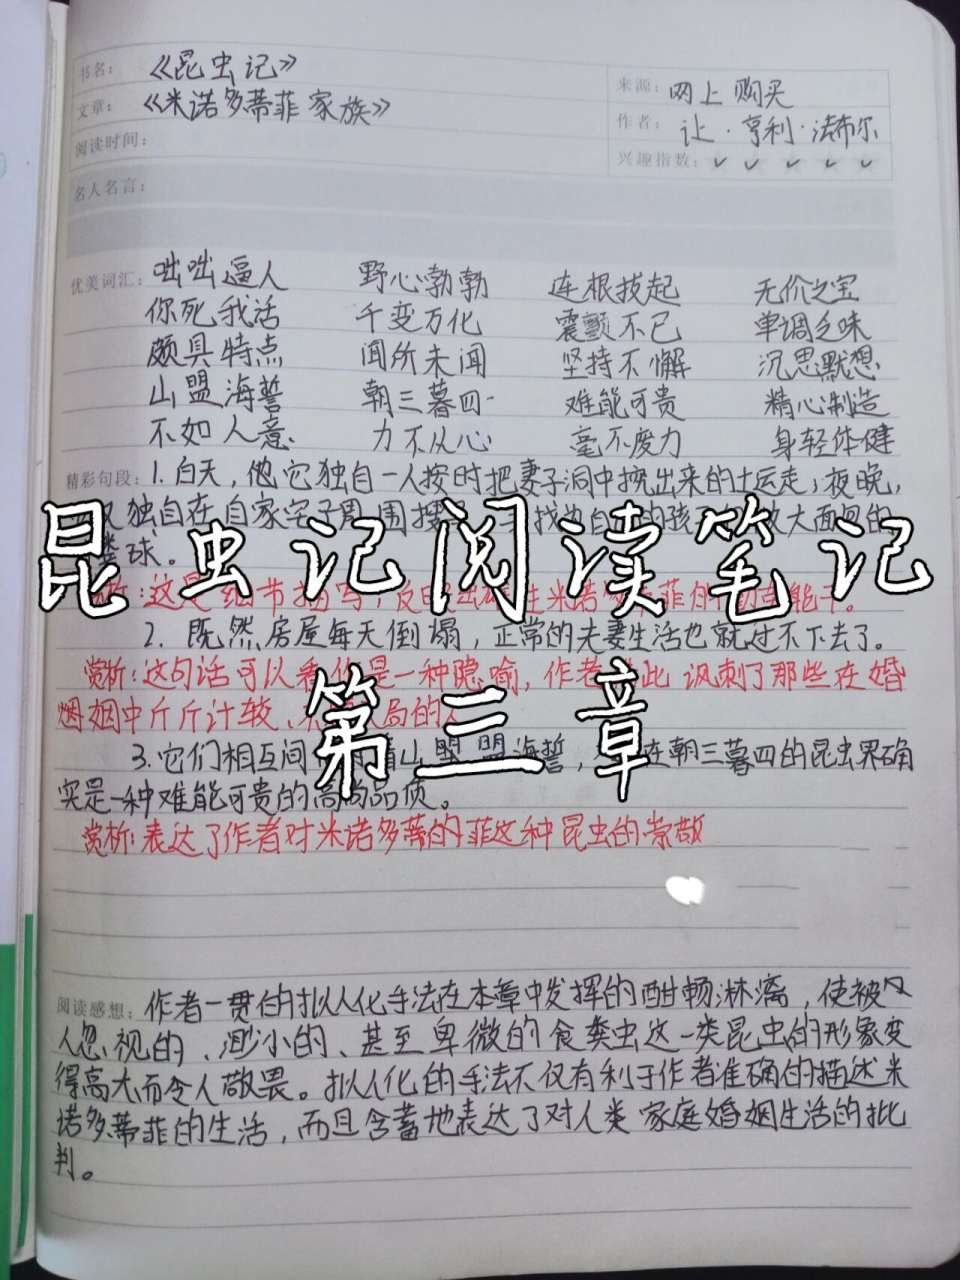 书名：《昆虫记》
来源：网上购买
文章：《米诺多蒂菲家族》
作者：让·亨利·法布尔
阅读时间：
兴趣指数：✓ ✓ ✓ ✓ ✓
名人名言：
优美词汇：咄咄逼人 野心勃勃 连根拔起 无价之宝
你死我活 千变万化 震颤不已 单调乏味
颇具特点 闻所未闻 坚持不懈 沉思默想
山盟海誓 朝三暮四 难能可贵 精心制造
不如人意 力不从心 毫不废力 身轻体健
精彩句段：1.白天，他它独自一人按时把妻子洞中挖出来的土运走；夜晚，
独自在自家宅子周围搜 找 自 的孩 大面包的
球。
昆虫记阅读笔记
：这是细节描写，反 米诺 菲的 能干。
2. 既然房屋每天倒塌，正常的夫妻生活也就过不下去了。
赏析：这句话可以看作是一种隐喻，作者 此讽刺了那些在婚
烟姻中斤斤计较、 局的人
第三章
3.它们相互间 山盟盟海誓， 在朝三暮四的昆虫界确
实是一种难能可贵的高尚品质。
赏析：表达了作者对米诺多蒂的菲这种昆虫的崇敬
阅读感想：作者一贯的拟人化手法在本章中发挥的酣畅淋漓，使被
人忽视的、渺小的、甚至卑微的食粪虫这一类昆虫的形象变
得高大而令人敬畏。拟人化的手法不仅有利于作者准确的描述米
诺多蒂菲的生活，而且含蓄地表达了对人类家庭婚姻生活的批
判。